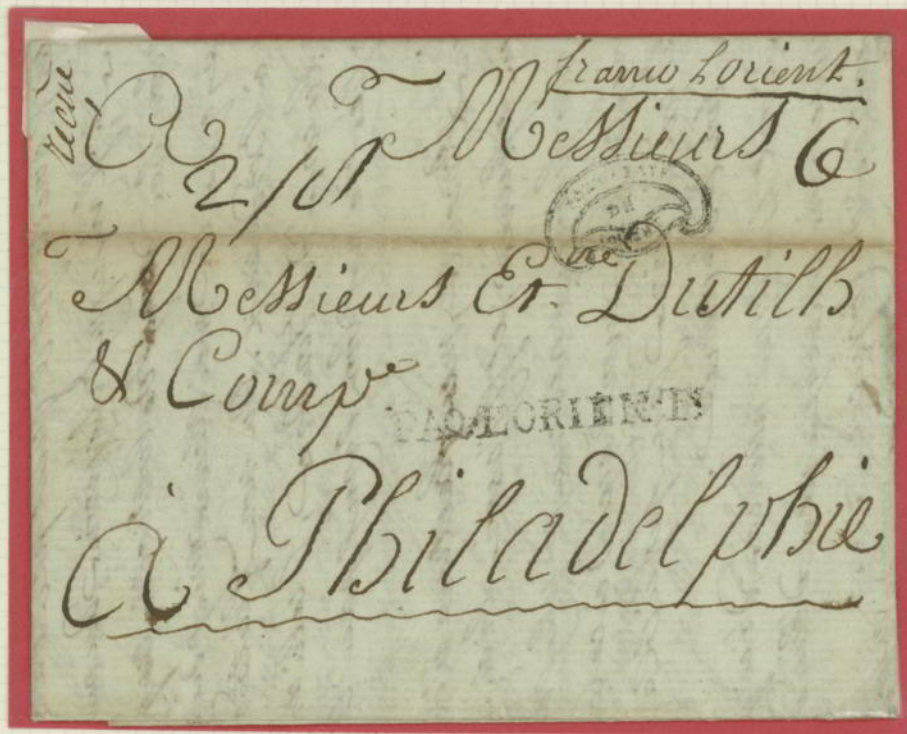 franco Lorient.
A Messieurs 6
2/8
Messieurs Et.ne Dutilh
& Comp.e
PAQ.LORIENT
à Philadelphie